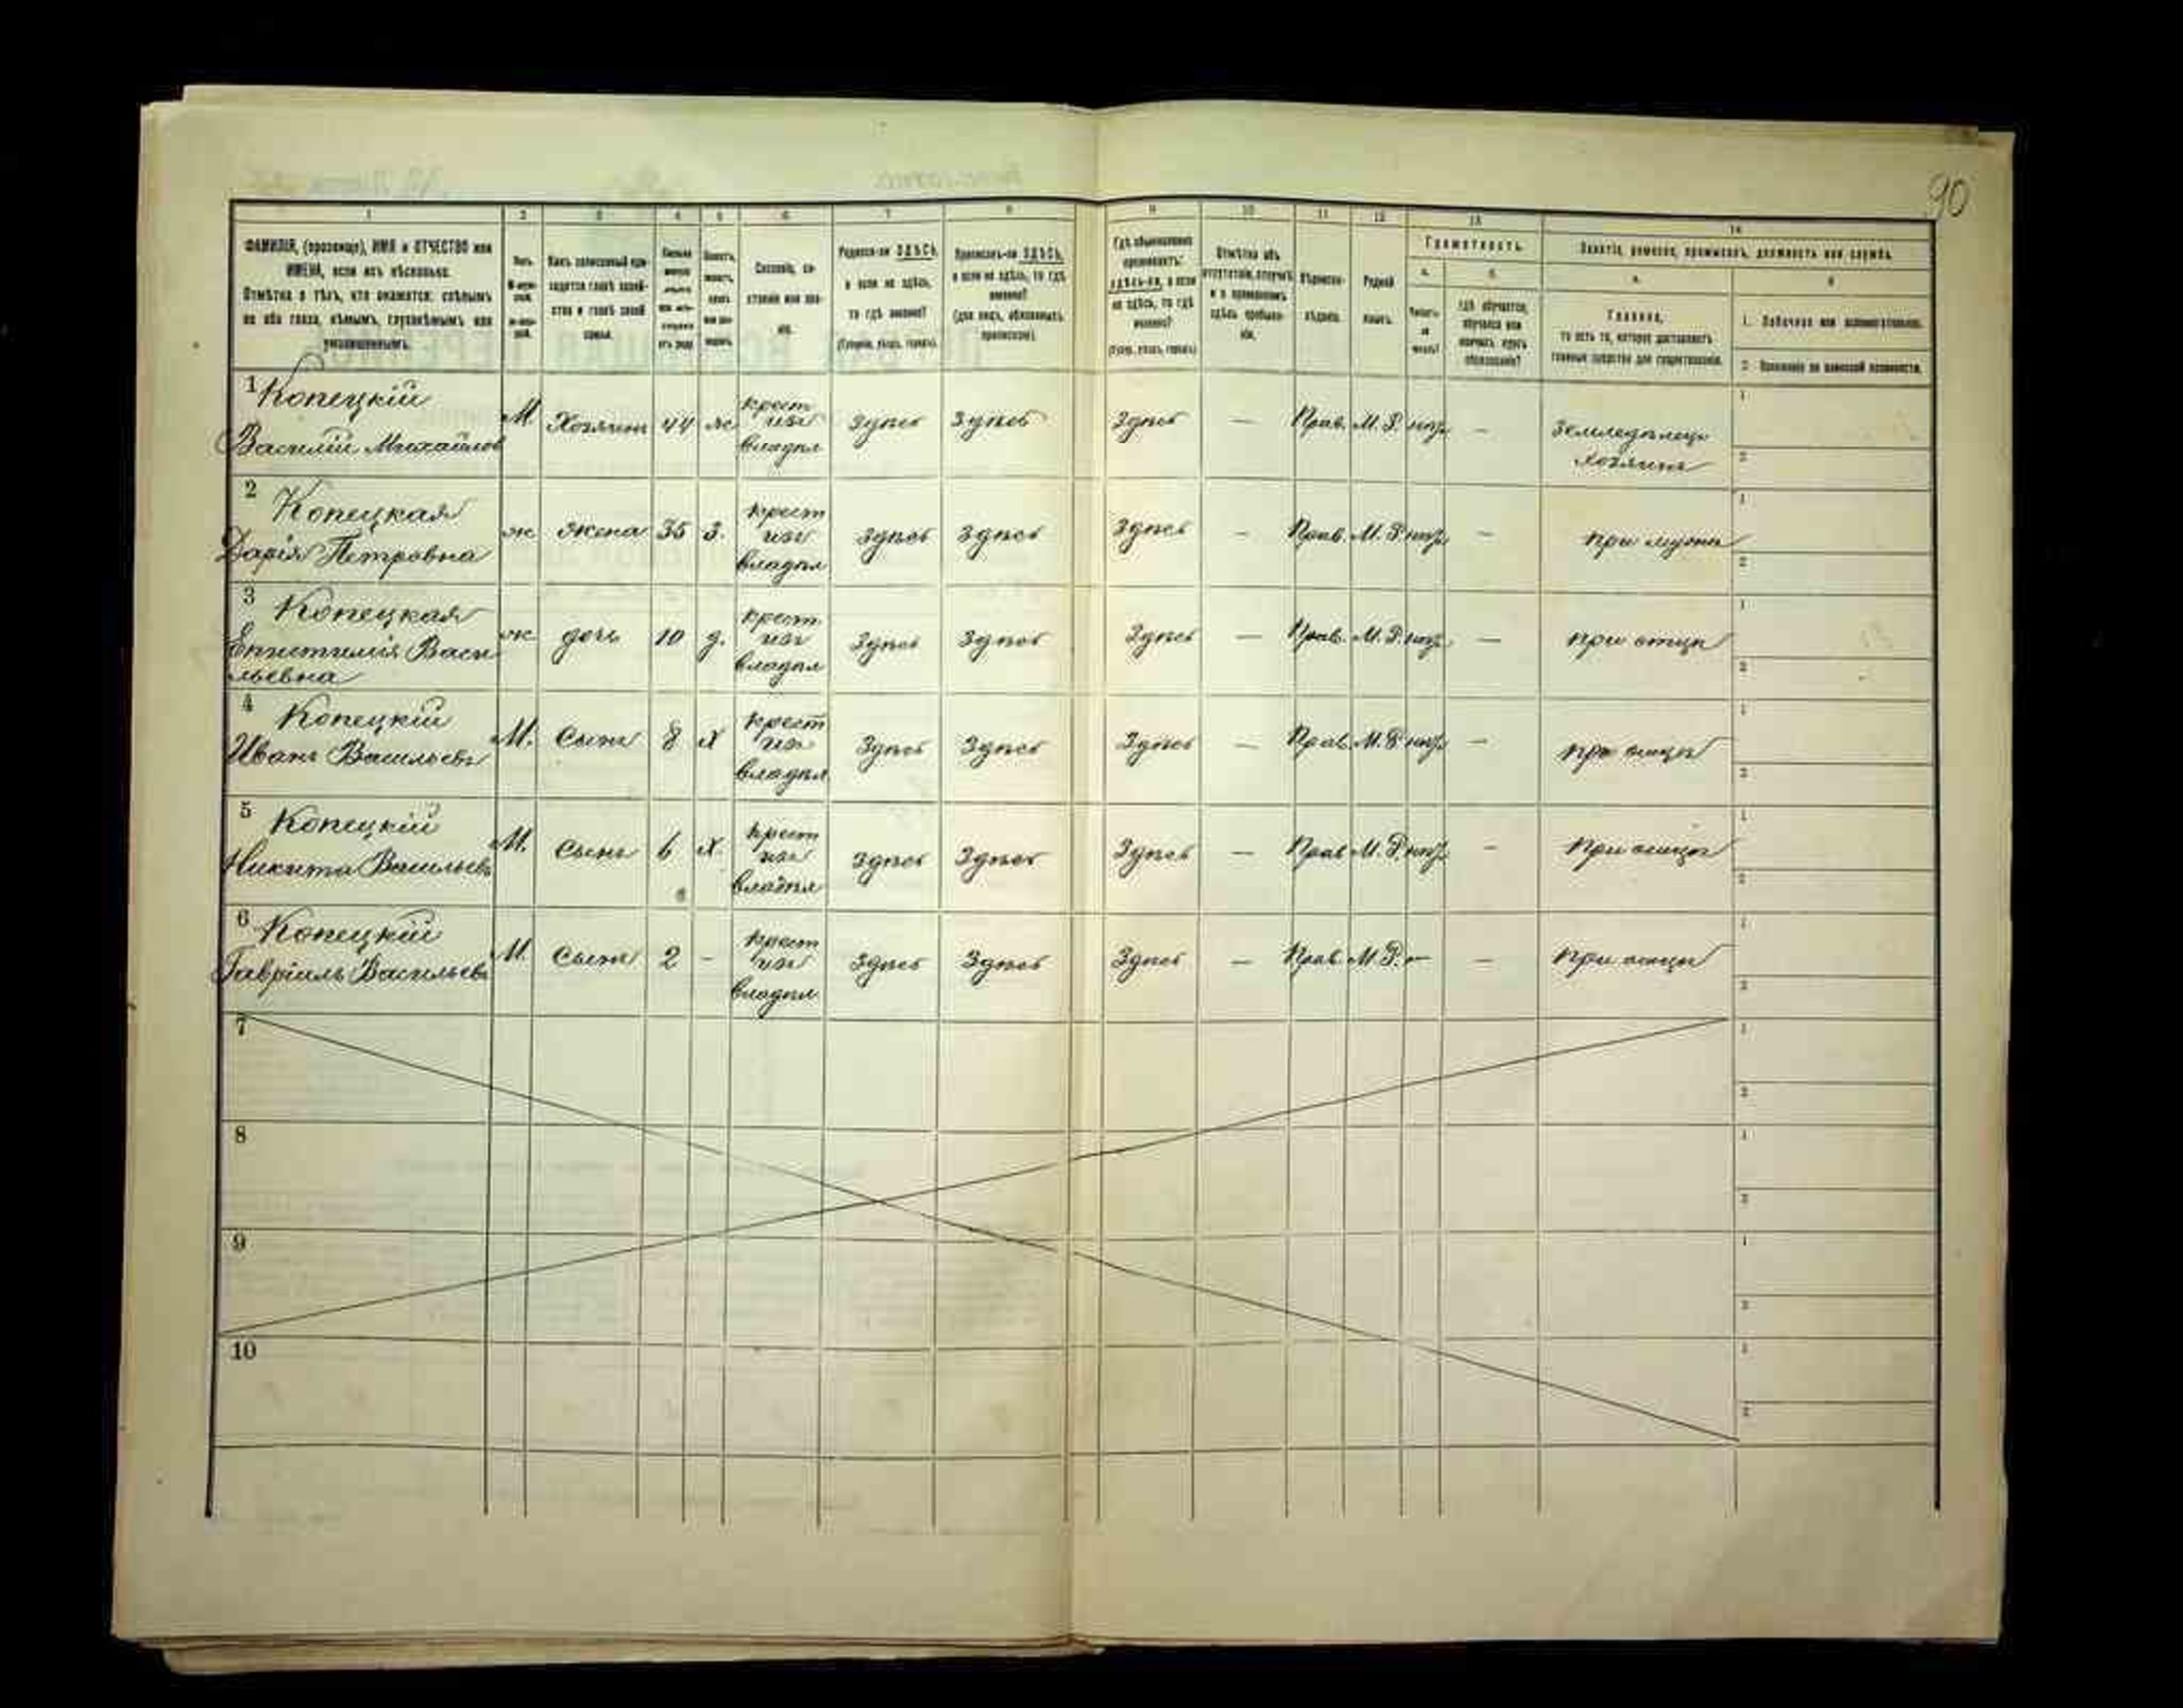 90
1 2 3 4 5 6 7 8 9 10 11 12 13 14
ФАМИЛІЯ, (прозвище), ИМЯ и ОТЧЕСТВО или
ИМЕНА, если ихъ нѣсколько.
Отмѣтка о тѣхъ, кто окажется: слѣпымъ
на оба глаза, нѣмымъ, глухонѣмымъ или
умалишеннымъ.
Какъ записанный при-
ходится главѣ хозяй-
ства и главѣ своей
семьи.
Сословіе, со-
стояніе или зва-
ніе.
Родился-ли ЗДѢСЬ,
а если не здѣсь,
то гдѣ именно?
(Губернія, уѣздъ, городъ).
Приписанъ-ли ЗДѢСЬ,
а если не здѣсь, то гдѣ
именно?
(для лицъ, обязанныхъ
припискою).
Гдѣ обыкновенно
проживаетъ:
здѣсь-ли, а если
не здѣсь, то гдѣ
именно?
(Губер., уѣздъ, городъ)
Отмѣтка объ
отсутствіи, отлучкѣ
и о временномъ
здѣсь пребыва-
ніи.
Вѣроиспо-
вѣданіе.
Родной
языкъ.
Грамотность.
а. б.
Гдѣ обучается,
обучался или
кончилъ курсъ
образованія?
Занятіе, ремесло, промыселъ, должность или служба.
а. б.
Главное,
то есть то, которое доставляетъ
главныя средства для существованія.
1. Побочное или вспомогательное.
2. Положеніе по воинской повинности.
1 Копецкій
Василій Михайлов М. Хозяинъ 44 ж крест изъ владѣл здѣсь здѣсь здѣсь — Прав. М. Р. нѣтъ — земледѣлецъ хозяинъ 1 2
2 Копецкая
Дарія Петровна ж жена 35 з. крест изъ владѣл здѣсь здѣсь здѣсь — Прав. М. Р. нѣтъ — при мужѣ 1 2
3 Копецкая
Епистимія Васи
льевна ж дочь 10 д. крест изъ владѣл здѣсь здѣсь здѣсь — Прав. М. Р. нѣтъ — при отцѣ 1 2
4 Копецкій
Иванъ Васильевъ М. Сынъ 8 Х крест изъ владѣл здѣсь здѣсь здѣсь — Прав. М. Р. нѣтъ — при отцѣ 1 2
5 Копецкій
Никита Васильевъ М. Сынъ 6 Х. крест изъ владѣл здѣсь здѣсь здѣсь — Прав М. Р. нѣтъ - при отцѣ 1 2
6 Копецкій
Гавріилъ Васильевъ М. Сынъ 2 - крест изъ владѣл здѣсь здѣсь здѣсь — Прав. М. Р. — — при отцѣ 1 2
7 1 2
8 1 2
9 1 2
10 1 2